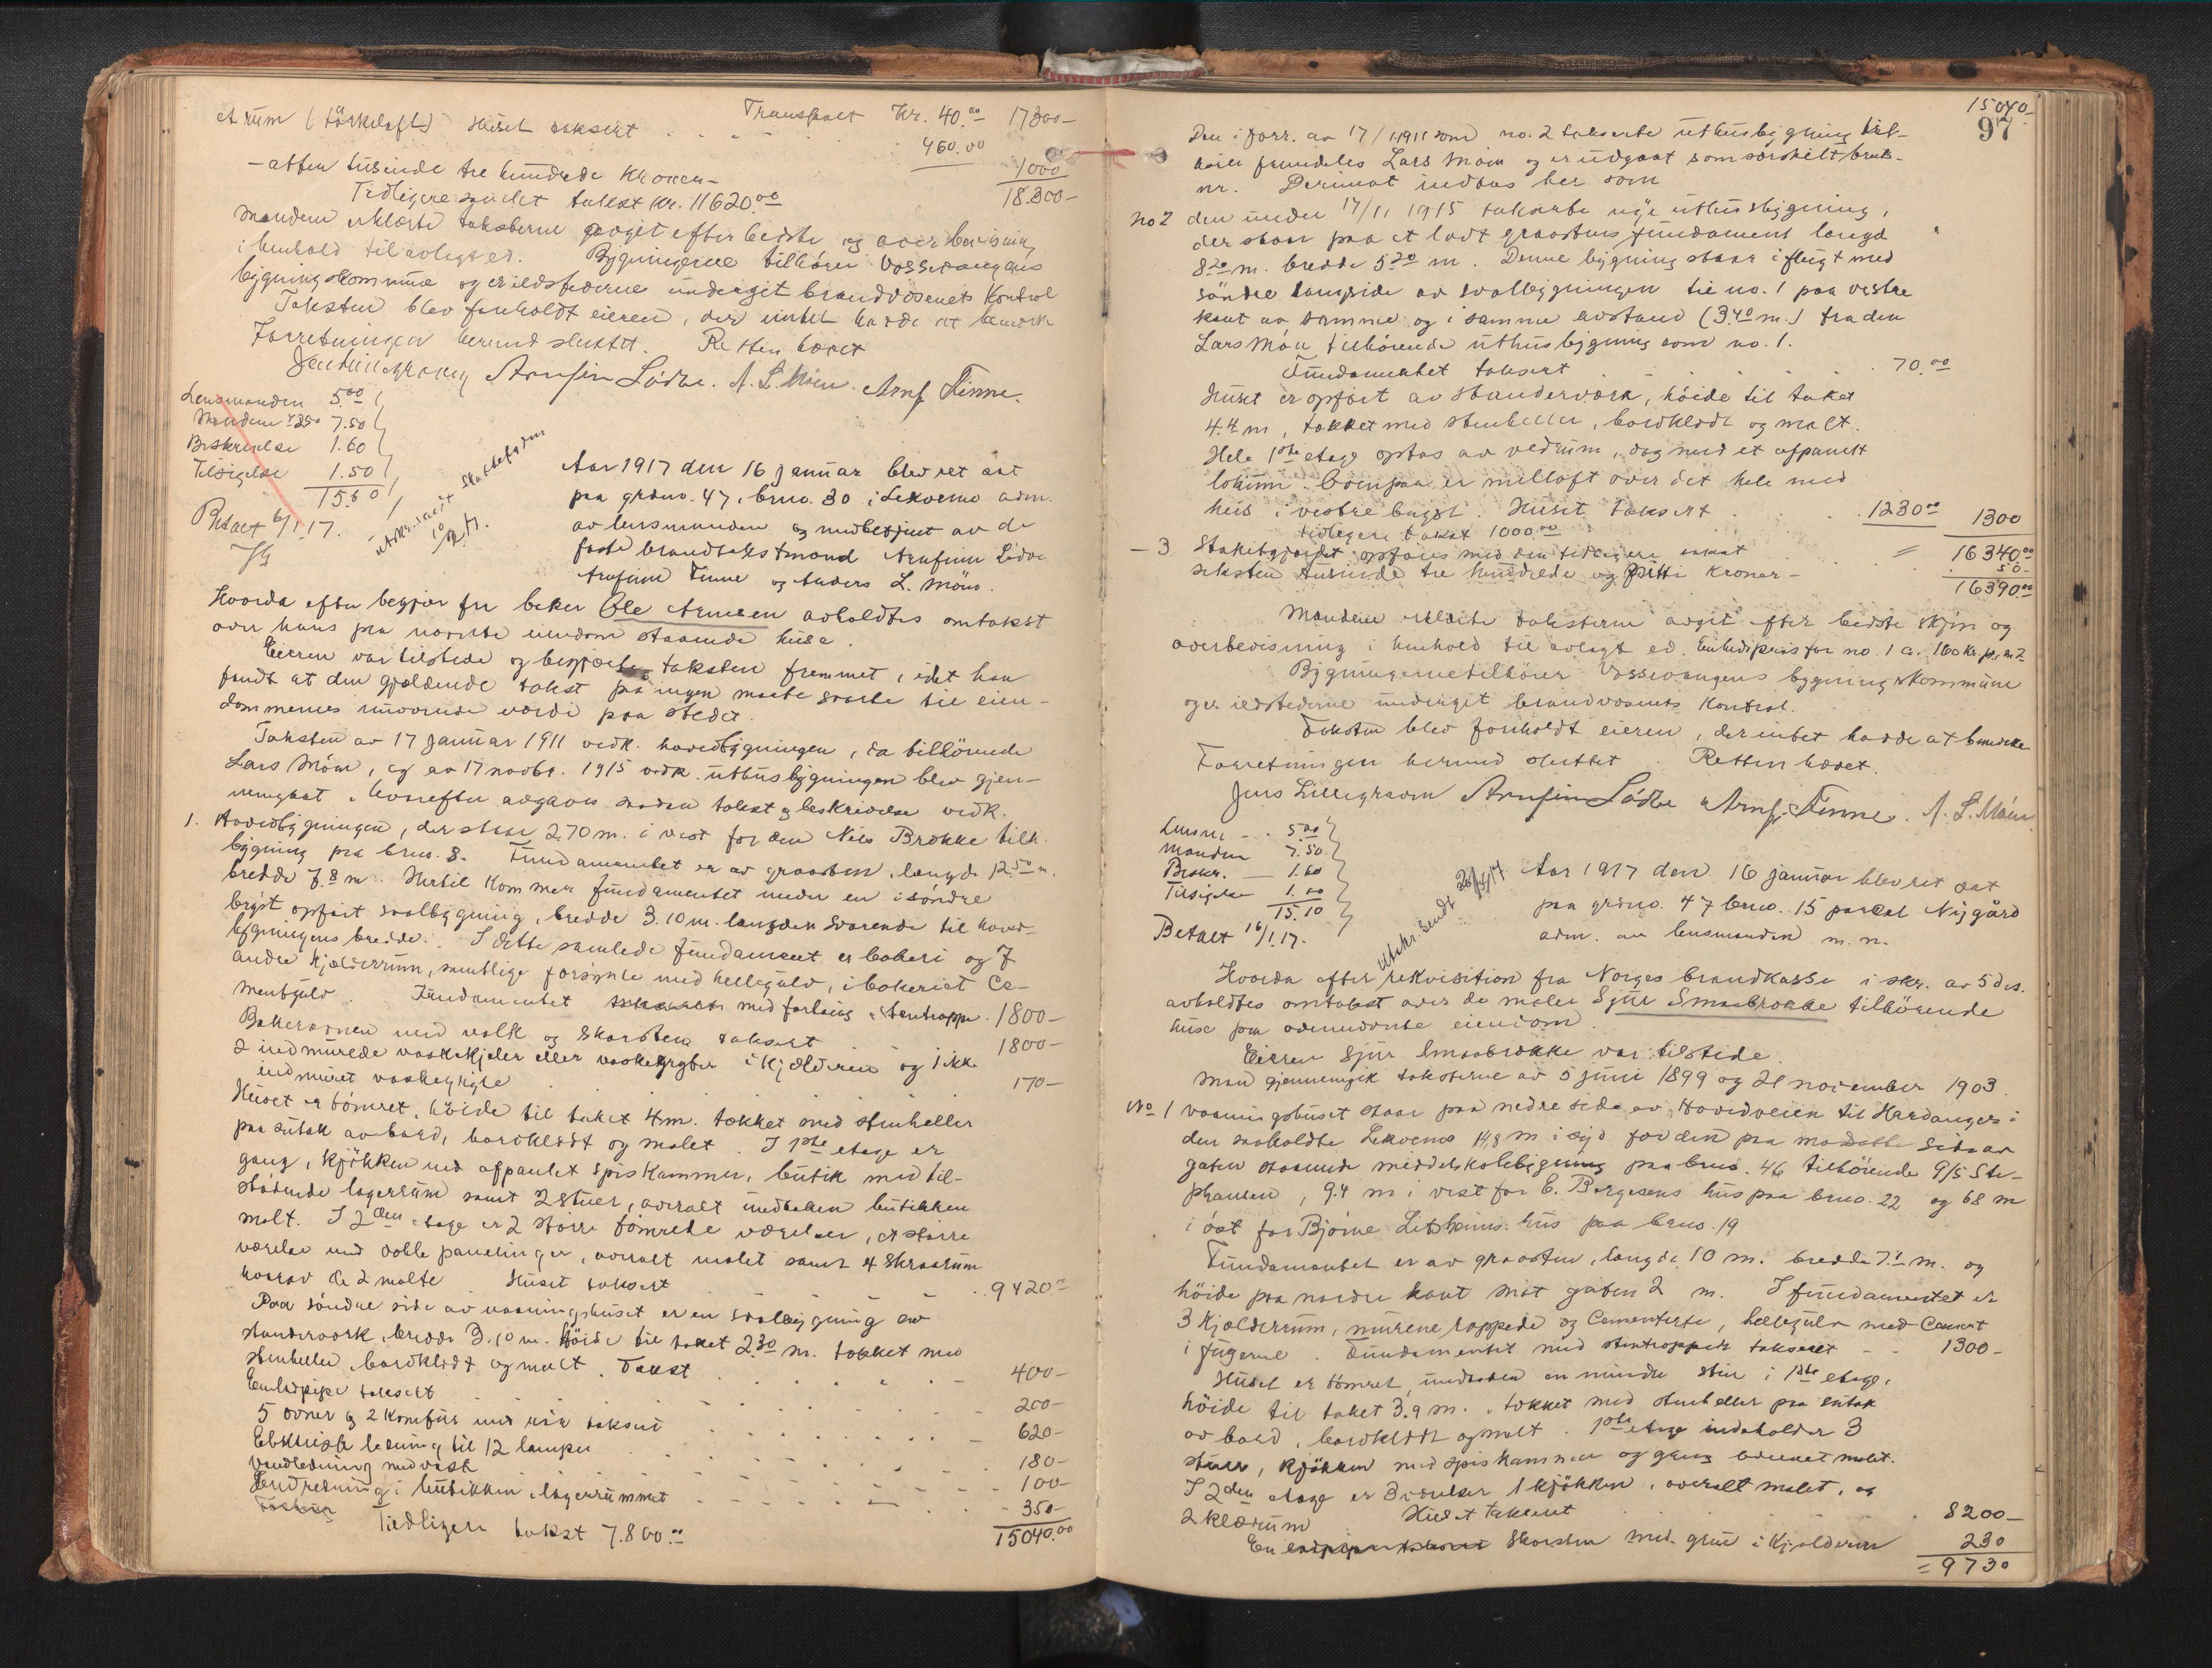 Transport Kr. 40.00 17300-
et rum (tørkeloft) Huset taksert . . . 460.00 1000
- atten tusende tre hundrede kroner - 18.300-
Tidligere samlet takst kr. 11620.00
Mændene erklærte taksterne avgit efter bedste og overbevisning
i henhold til avlagt ed. Bygningerne tilhører Vossevangens
bygningskommune og er ildstederne undergit brandvæsenets kontrol
Taksten blev foreholdt eieren, der intet havde at bemerke
Forretningen hermed sluttet. Retten hævet
Jens Lillegraven Arnfin Lødve. A. L. Møen. Arnf. Finne.
Lensmanden 5.00
Mændene à 2.50 7.50
Beskrivelse 1.60
Tilsigelse 1.50
15.60
Betalt 6/1.17.
JG
utskr. sendt skattefogden
10/2.17.
Aar 1917 den 16 januar blev ret sat
paa grdno. 47, brno. 30 i Lekvemo adm.
av lensmanden og medbetjent av de
faste brandtakstmænd Arnfinn Lødve
Arnfinn Finne og Anders L. Møen.
Hvorda efter begjær fra baker Ole Arnesen avholdtes omtakst
over hans paa nævnte eiendom staaende huse.
Eieren var tilstede og begjærte taksten fremmet, idet han
fandt at den gjældende takst paa ingen maate svarte til eien-
dommenes nuværende værdi paa stedet.
Taksten av 17 januar 1911 vedk. hovedbygningen, da tilhørende
Lars Møen, og av 17 novbr. 1915 vedk. uthusbygningen blev gjen-
nemgaat, hvorefter avgaves saadan takst og beskrivelse vedk.
1. Hovedbygningen, der staar 2.70 m. i vest for den Nils Brække tilh.
bygning paa brno. 8. Fundamentet er av graasten, længde 12.50 m.
bredde 7.8 m. Hertil kommer fundamentet under en i søndre
bryst opført svalbygning, bredde 3.10 m. længden svarende til hoved-
bygningens bredde. I dette samlede fundament er bakeri og 7
andre kjælderrum, samtlige forsynte med hellegulv, i bakeriet ce-
mentgulv. Fundamentet med forlæng stentrappe . 1800-
Bakerovnen med rølk og skorsten taksert 1800-
2 indmurede vaskekjeler eller vaskegryter i kjælderen og 1 ikke
indmuret vaskegryte 170-
Huset er tømret, høide til taket 4 m. tækket med stenheller
paa sutak av bord, bordklædt og malet. I 1ste etage er
gang, kjøkken med afpanelet spiskammer, butik med til-
støtende lagerrum samt 2 stuer, overalt undtaken butikken
malt. I 2den etage er 2 større tømrede værelser, et større
værelse med doble panelinger, overalt malet samt 4 skraarum
hvorav de 2 malte Huset taksert . . 9420.00
Paa søndre side av vaaningshuset er en svalbygning av
standerverk, bredde 3.10 m. Høide til taket 2.30 m. tækket med
stenheller, bordklædt og malt. Takst . . . . 400-
Enkelpipe taksert . . . . 200-
5 ovner og 2 komfur med rør taksert . . . . 620-
Elektrisk ledning til 12 lamper . . . . 180-
Vandledning med vask . . . . 100-
Indredning i butikken, lagerrummet . . . . 350-
Tidligere takst 7.800.00 15040.00
15040-
97
Den i forr. av 17/1 1911 som no. 2 takserte uthusbygning til-
hører fremdeles Lars Møen og er udgaat som særskilt bruks-
nr. Derimot indtas her som
No 2 den under 17/11 1915 takserte nye uthusbygning,
der staar paa et lavt graastens fundament længde
8.20 m. bredde 5.20 m. Denne bygning staar i flugt med
søndre langside av svalbygningen til no. 1 paa vestre
kant av samme og i samme avstand (3.40 m.) fra den
Lars Møen tilhørende uthusbygning som no. 1.
Fundamentet taksert . . . . 70.00
Huset er opført av standerværk, høide til taket
4.4 m, tækket med stenheller, bordklædt og malt.
Hele 1ste etage optas av vedrum, dog med et afpanelt
lokum. Ovenpaa er melloft over det hele med
heis i vestre bryst. Huset taksert . . . 1230.00 1300
tidligere takst 1000.00
- 3 Stakitgjærdet opføres med den tidligere takst . . = 16340.00
seksten tusinde tre hundrede og nitti kroner - 50-
16390.00
Mændene erklærte taksterne avgit efter bedste skjøn og
overbevisning i henhold til avlagt ed. Enhedspris for no. 1 ca. 160 kr. pr. m2
Bygningerne tilhører Vossevangens bygningskommune
og er ildstederne undergit brandvæsenets kontrol.
Taksten blev foreholdt eieren, der intet hadde at bemerke
Forretningen hermed sluttet. Retten hævet.
Jens Lillegraven Arnfin Lødve Arnf. Finne. A. L. Møen
Lensm. - . 5.00
Mænden 7.50
Beskr. - 1.60
Tilsigelse 1.00
15.10
Betalt 16/1.17.
Utskr. sendt
Aar 1917 den 16 januar blev ret sat
paa grdno. 47 brno. 15 parcel Nygård
adm. av lensmanden m. n.
Hvorda efter rekvisition fra Norges brandkasse i skr. av 5 des.
avholdtes omtakst over de maler Sjur Smaabrække tilhørende
huse paa ovennævnte eiendom.
Eieren Sjur Smaabrække var tilstede.
Man gjennemgik taksterne av 5 juni 1899 og 21 november 1903.
No 1 vaaningshuset staar paa nedre side av Hovedveien til Hardanger i
den saakaldte Lekvemo 14,8 m i syd for den paa modsatte side av
gaten staaende middelskolebygning paa brno. 46 tilhørende G/S Ste-
phansen, 9.4 m i vest for E. Børgesens hus paa brno. 22 og 68 m
i øst for Bjørne Litsheims hus paa brno. 19
Fundamentet er av graasten, længde 10 m. bredde 7.1 m. og
høide paa nordre kant mot gaten 2 m. I fundamentet er
3 kjælderrum, murene rappede og cementerte, hellegulv med cement
i fugerne. Fundamentet med stentrapper taksert - - 1300-
Huset er tømret, undtaken en mindre stue i 1ste etage,
høide til taket 3.9 m., tækket med stenheller paa sutak
av bord, bordklædt og malt. 1ste etage indeholder 3
stuer, kjøkken med spiskammer og gang overalt malet.
I 2den etage er 3 værelser 1 kjøkken, overalt malet, og
2 klærum Huset taksert . 8200-
En skorsten med grue i kjælderen 230
= 9730